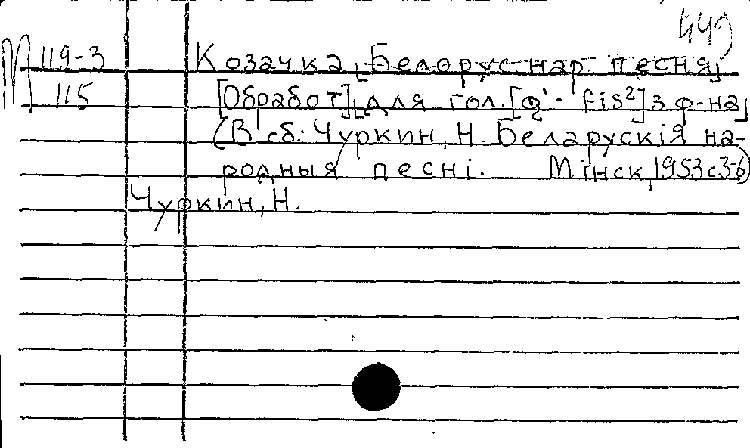 449
М 119-3 Козачка, Белорус. нар. песня,
115 [Обработ], для гол. [a¹- fis²] з ф-на,
(В сб.: Чуркин, Н. Беларускія на-
родныя песні. Мінск, 1953 с3-6)
Чуркин, Н.